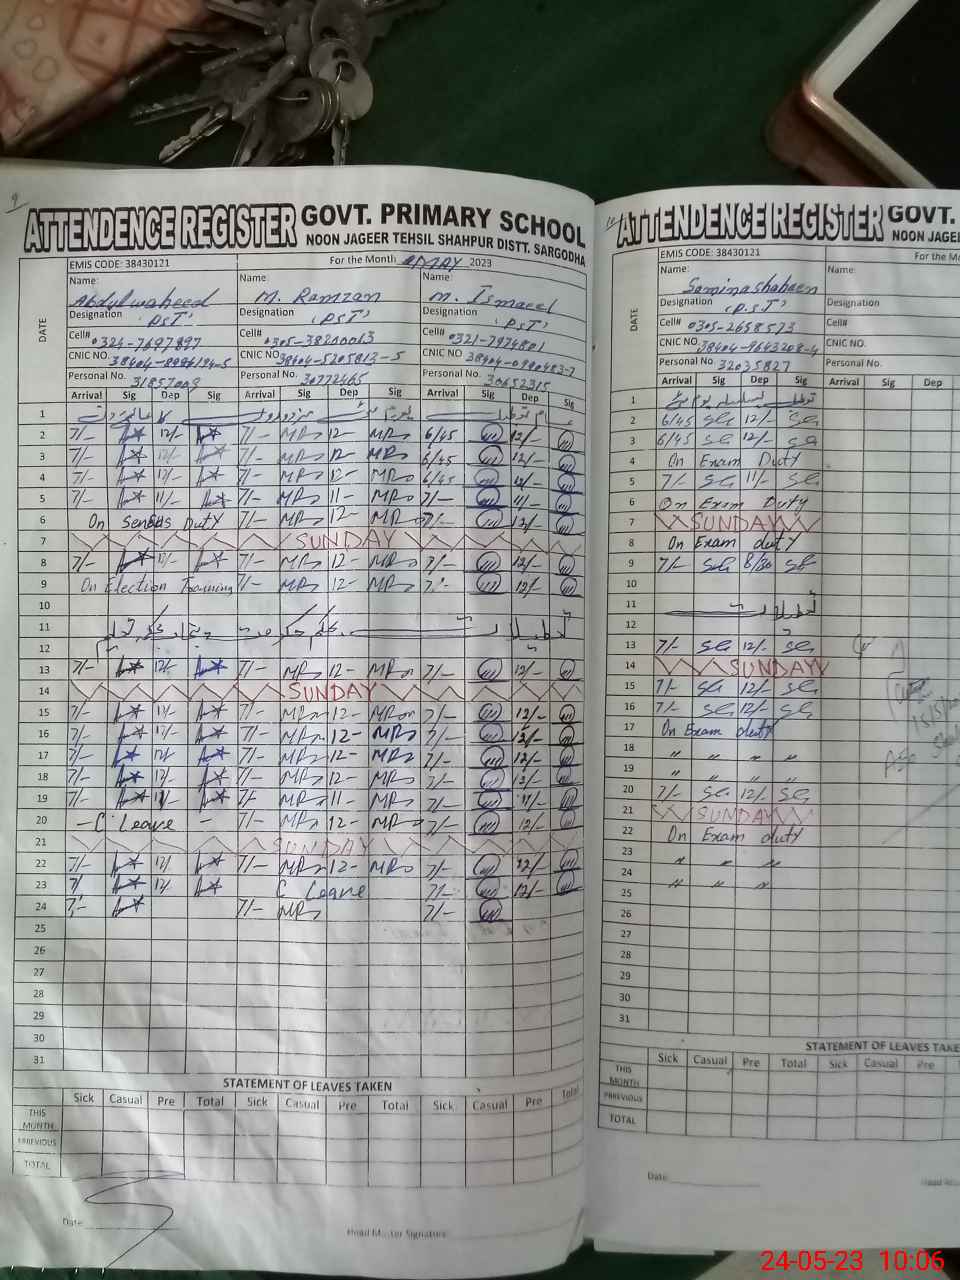 9
ATTENDENCE REGISTER GOVT. PRIMARY SCHOOL
NOON JAGEER TEHSIL SHAHPUR DISTT. SARGODHA
EMIS CODE: 38430121 For the Month MAY 2023
DATE
Name: Name: Name:
Abdul waheed M. Ramzan M. Ismaeel
Designation Designation Designation
'PST' 'PST' 'PST'
Cell# 0324-7697897 Cell# 0305-38200013 Cell# 0321-7974801
CNIC NO. CNIC NO. 38404-5205813-5 CNIC NO. 38404-0980483-7
Personal No. 31857009 Personal No. 30772465 Personal No. 30652315
Arrival Sig Dep Sig Arrival Sig Dep Sig Arrival Sig Dep Sig
1
2 7/- 12/- 7/- MR 12- MR 6/45 12/-
3 7/- 12/- 7/- MR 12- MR 6/45 12/-
4 7/- 12/- 7/- MR 12- MR 6/45 12/-
5 7/- 11/- 7/- MR 11- MR 7/- 11/-
6 On Sensus Duty 7/- MR 12- MR 7/- 12/-
7 SUNDAY
8 7/- 12/- 7/- MR 12- MR 7/- 12/-
9 On Election Training 7/- MR 12- MR 7/- 12/-
10
11
12
13 7/- 12/- 7/- MR 12- MR 7/- 12/-
14 SUNDAY
15 7/- 12/- 7/- MR 12- MR 7/- 12/-
16 7/- 12/- 7/- MR 12- MR 7/- 12/-
17 7/- 12/- 7/- MR 12- MR 7/- 12/-
18 7/- 12/- 7/- MR 12- MR 7/- 12/-
19 7/- 11/- 7/- MR 11- MR 7/- 11/-
20 - C Leave - 7/- MR 12- MR 7/- 12/-
21 SUNDAY
22 7/- 12/- 7/- MR 12- MR 7/- 12/-
23 7/ 12/- C Leave 7/- 12/-
24 7/- 7/- MR 7/-
25
26
27
28
29
30
31
STATEMENT OF LEAVES TAKEN
Sick Casual Pre Total Sick Casual Pre Total Sick Casual Pre Total
THIS MONTH
PREVIOUS
TOTAL
Date
Head Master Signature
ATTENDENCE REGISTER GOVT.
NOON JAGE
EMIS CODE: 38430121 For the Mo
DATE
Name: Name:
Samina shaheen
Designation Designation
'P.S.T'
Cell# 0305-2658573 Cell#
CNIC NO. 38404-9643208-4 CNIC NO.
Personal No. 32035827 Personal No.
Arrival Sig Dep Sig Arrival Sig Dep
1
2 6/45 12/-
3 6/45 12/-
4 On Exam Duty
5 7/- 11/-
6 On Exam Duty
7 SUNDAY
8 On Exam duty
9 7/- 8/30
10
11
12
13 7/- 12/-
14 SUNDAY
15 7/- 12/-
16 7/- 12/-
17 On Exam duty
18 " " " "
19 " " " "
20 7/- 12/-
21 SUNDAY
22 On Exam duty
23 " " "
24 " " "
25
26
27
28
29
30
31
STATEMENT OF LEAVES TAKE
Sick Casual Pre Total Sick Casual Pre
THIS MONTH
PREVIOUS
TOTAL
Date
24-05-23 10:06